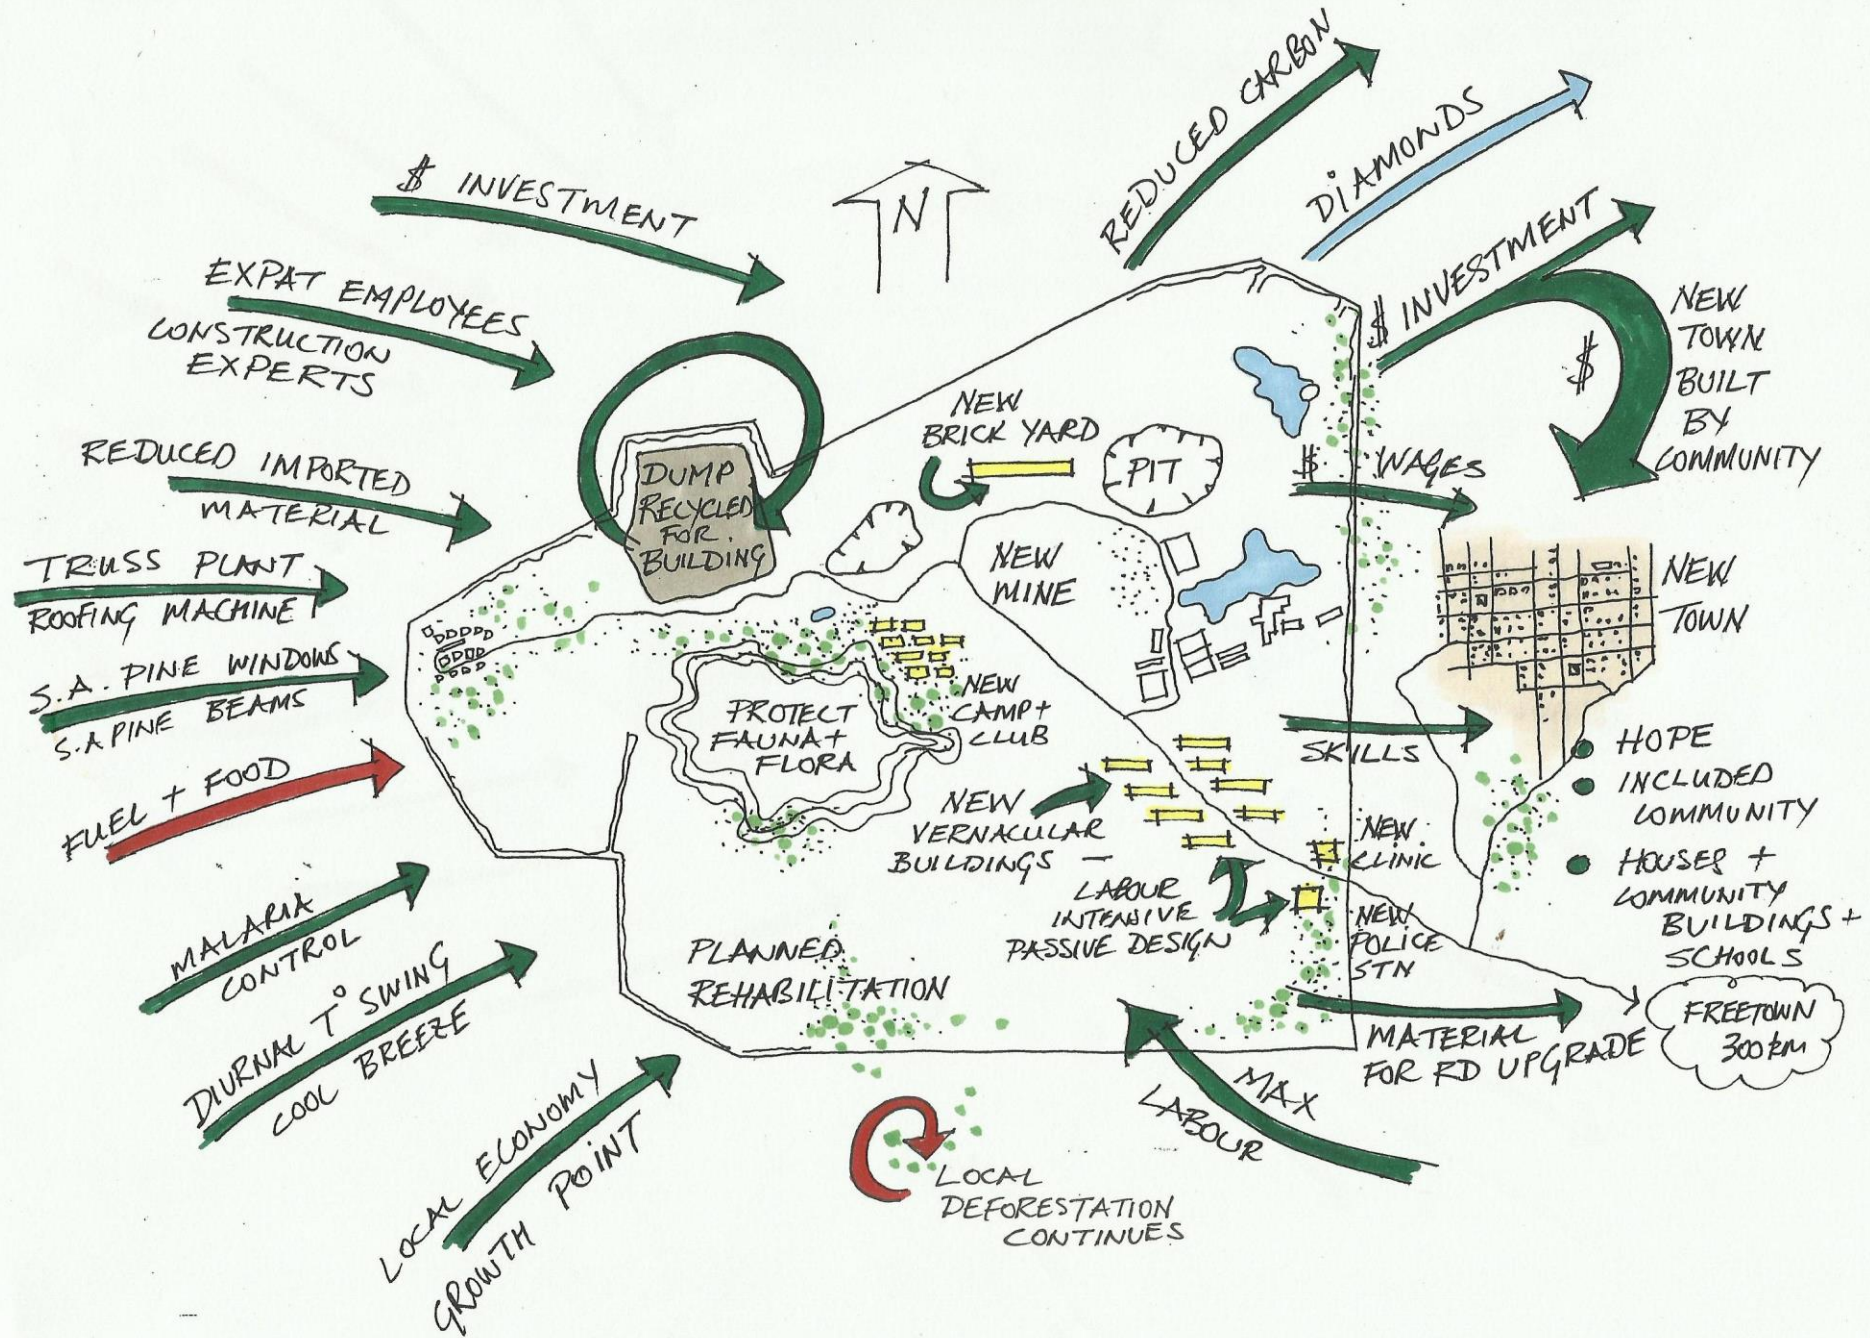 $ INVESTMENT
EXPAT EMPLOYEES
CONSTRUCTION
EXPERTS
REDUCED IMPORTED
MATERIAL
TRUSS PLANT
ROOFING MACHINE
S.A. PINE WINDOWS
S.A PINE BEAMS
FUEL + FOOD
MALARIA
CONTROL
DIURNAL T° SWING
COOL BREEZE
LOCAL ECONOMY
GROWTH POINT
N
REDUCED CARBON
DIAMONDS
$ INVESTMENT
$
NEW
TOWN
BUILT
BY
COMMUNITY
DUMP
RECYCLED
FOR
BUILDING
NEW
BRICK YARD
PIT
$ WAGES
NEW
MINE
NEW
TOWN
PROTECT
FAUNA +
FLORA
NEW
CAMP +
CLUB
SKILLS
HOPE
INCLUDED
COMMUNITY
HOUSES +
COMMUNITY
BUILDINGS +
SCHOOLS
NEW
VERNACULAR
BUILDINGS –
LABOUR
INTENSIVE
PASSIVE DESIGN
NEW
CLINIC
NEW
POLICE
STN
PLANNED
REHABILITATION
MATERIAL
FOR RD UPGRADE
FREETOWN
300km
MAX
LABOUR
LOCAL
DEFORESTATION
CONTINUES